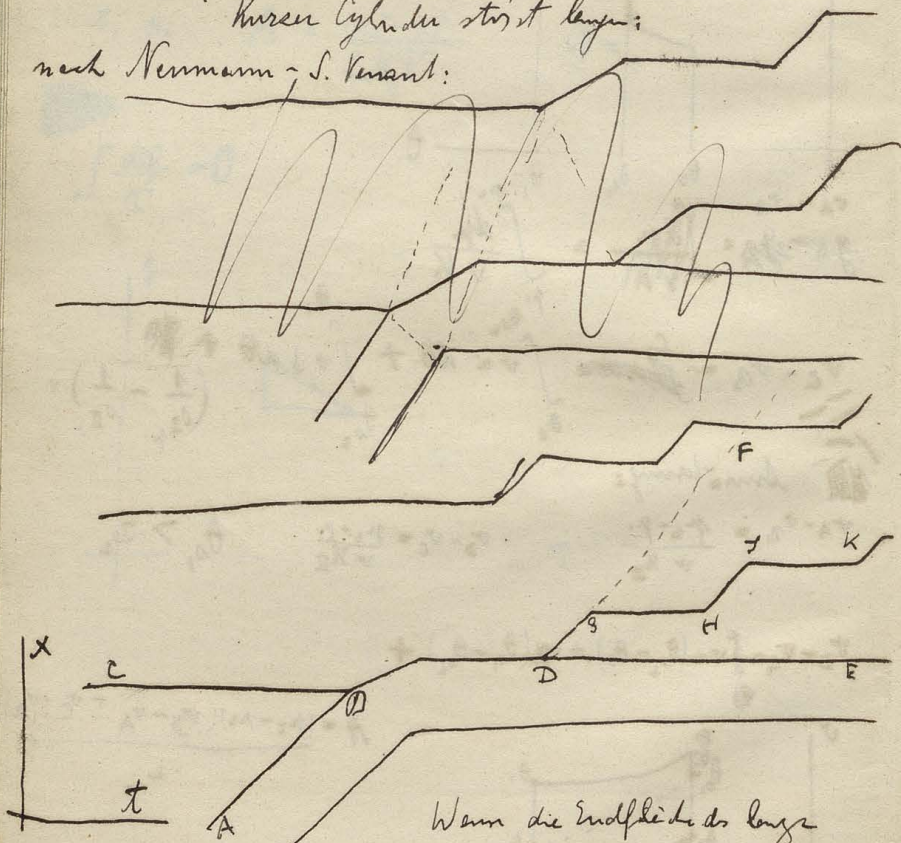 Kurzer Cylinder stösst langen:
nach Neumann - S. Venant:
F
J K
G H
x
C
B D E
t
A
Wenn die Endfläche des langen